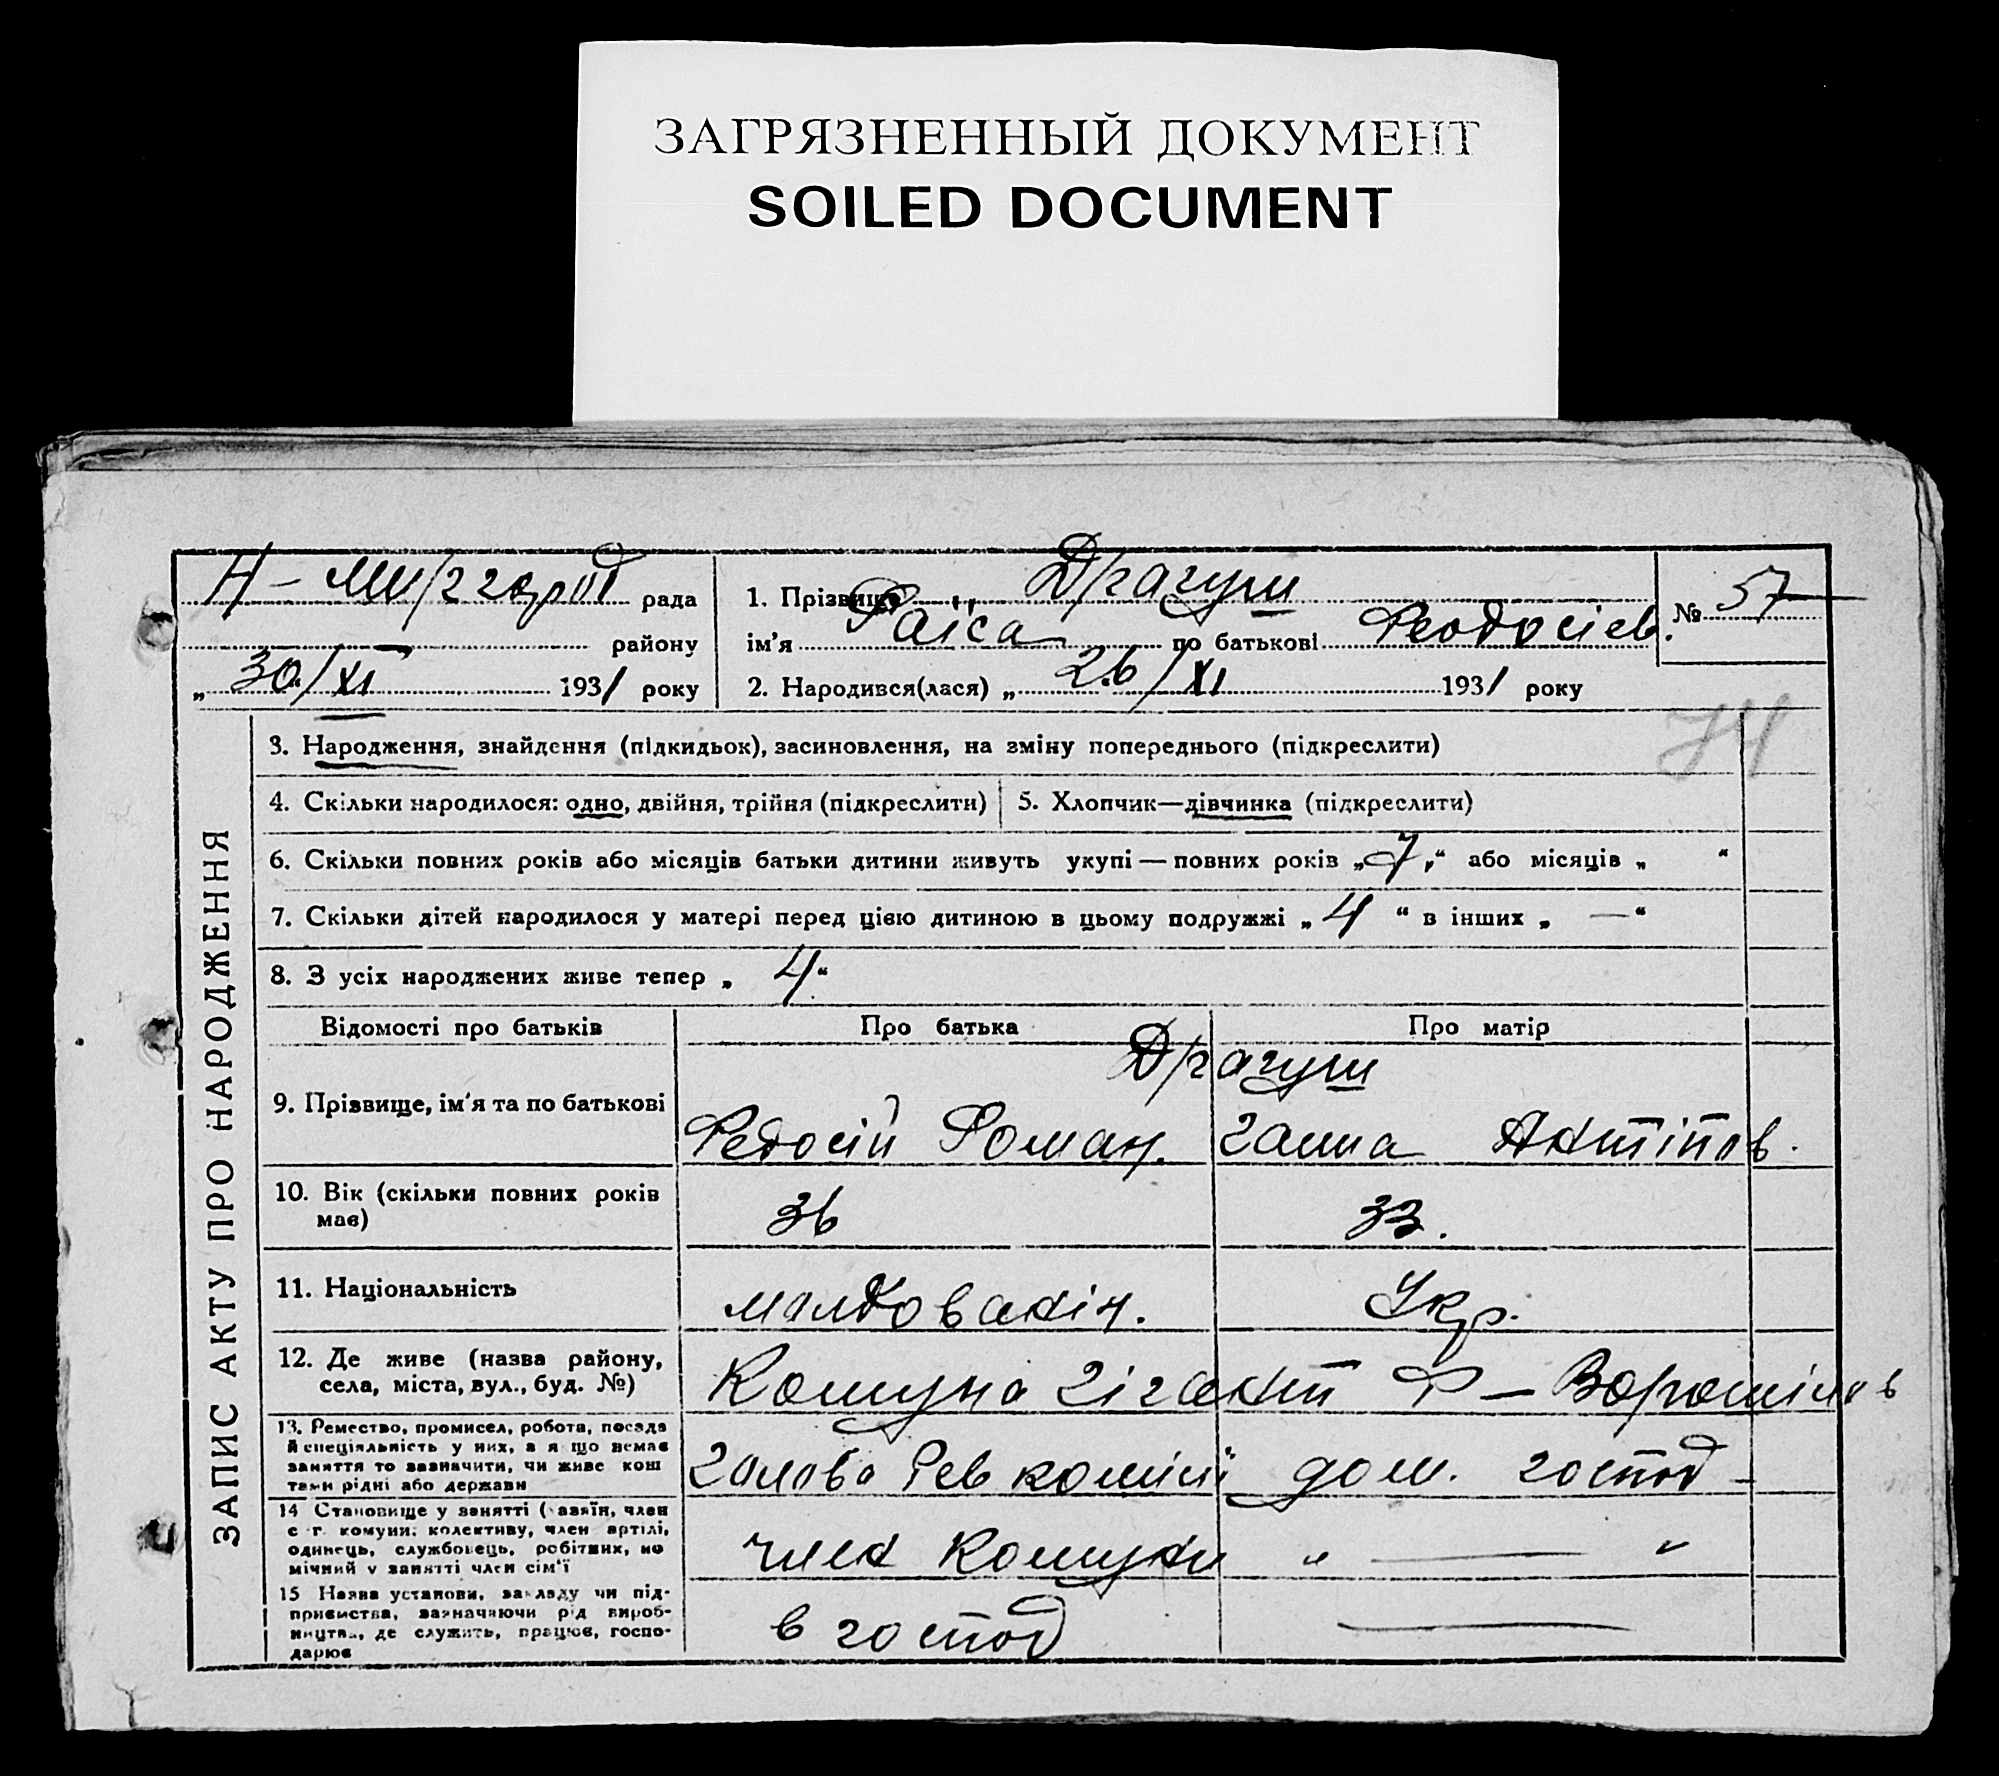 ЗАГРЯЗНЕННЫЙ ДОКУМЕНТ
SOILED DOCUMENT
Н-Миргород рада
району
„30“/XI 1931 року
1. Прізвище Драгуш
ім’я Раїса по батькові Феодосіев.
2. Народився(лася) „26“/XI 1931 року
№ 57
74
ЗАПИС АКТУ ПРО НАРОДЖЕННЯ
3. Народження, знайдення (підкидьок), засиновлення, на зміну попереднього (підкреслити)
4. Скільки народилося: одно, двійня, трійня (підкреслити)
5. Хлопчик—дівчинка (підкреслити)
6. Скільки повних років або місяців батьки дитини живуть укупі — повних років „7“ або місяців „ “
7. Скільки дітей народилося у матері перед цією дитиною в цьому подружжі „4“ в інших „—“
8. З усіх народжених живе тепер „4“
Відомості про батьків Про батька Про матір
Драгуш
9. Прізвище, ім’я та по батькові Федосій Роман. Ганна Антіпов.
10. Вік (скільки повних років
має) 36 33.
11. Національність молдованін. Укр.
12. Де живе (назва району,
села, міста, вул., буд. №) Комуна Гігант Ф – Ворошілов
13. Ремество, промисел, робота, посада
й спеціяльність у них, а якщо немає
заняття то зазначити, чи живе кош
тами рідні або держави
голова Рев комісії дом. господ –
14 Становище у занятті (хазяїн, член
с.-г. комуни, колективу, член артілі,
одинець, службовець, робітник, по
мічний у занятті член сім’ї
член Комуни „ — “
15 Назва установи, закладу чи під-
приємства, зазначаючи рід вироб-
ництва, де служить, працює, госпо-
дарює
в господ —